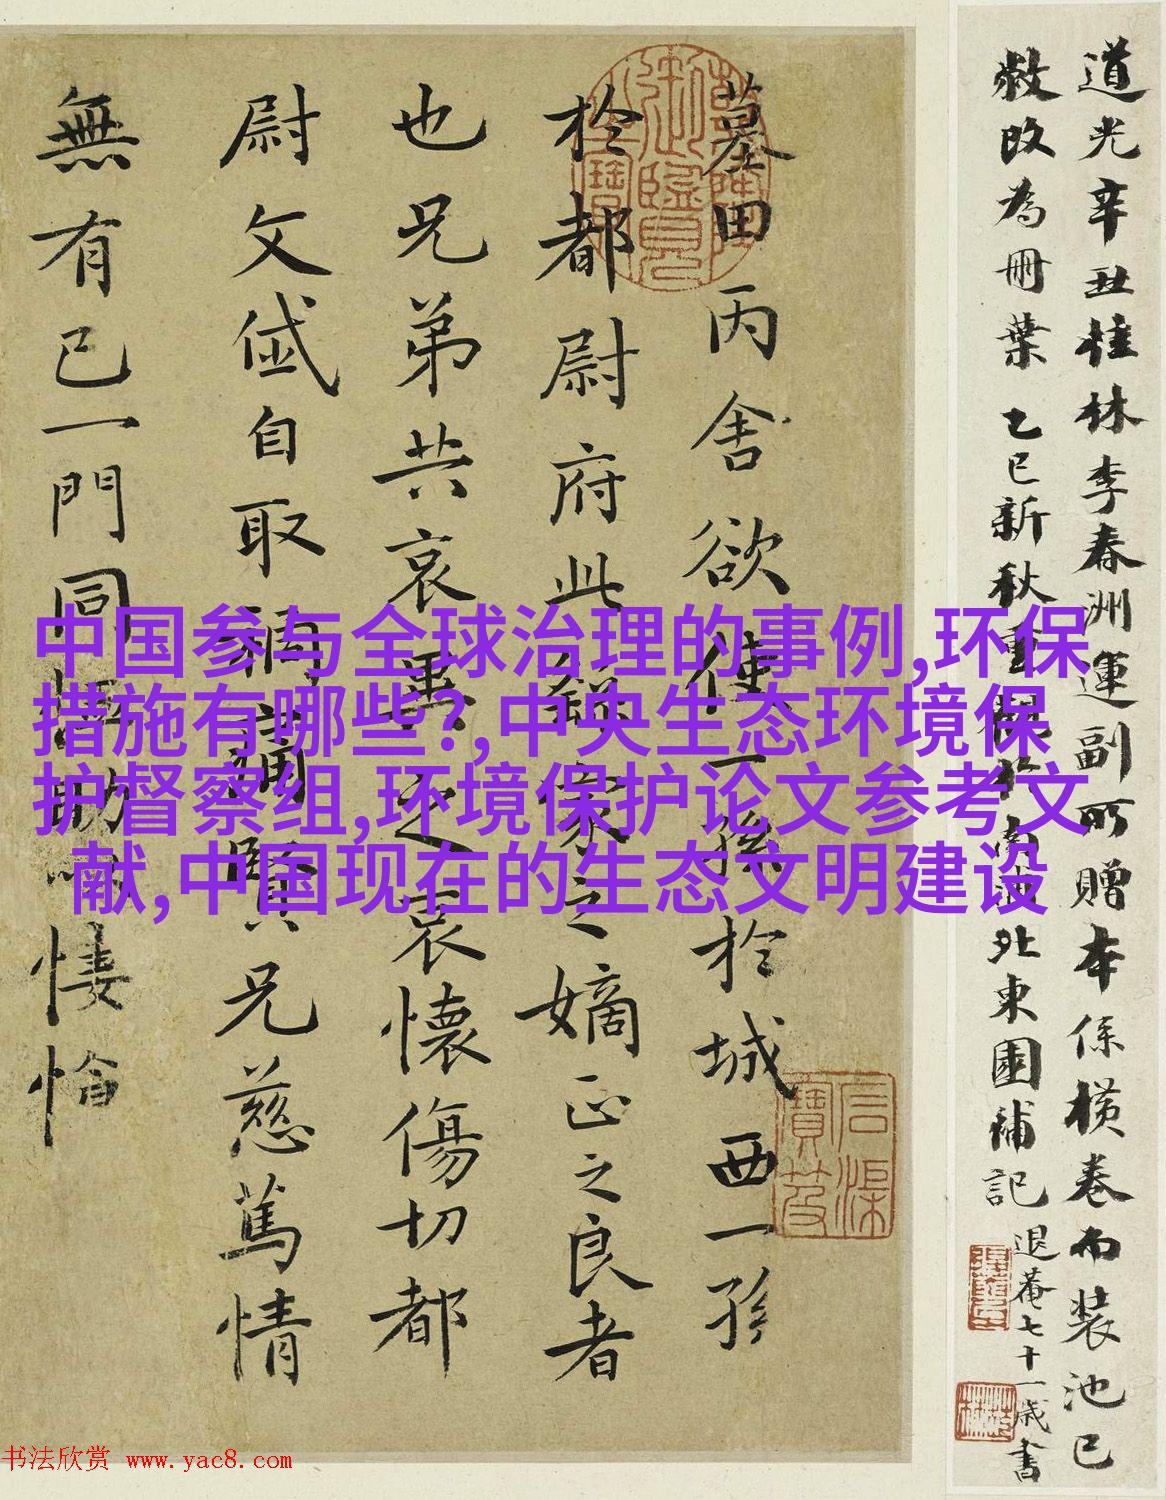 道光辛丑桂林李春洲運副所贈本係橫卷而裝池已
敝改為冊葉 乙巳新秋重裝於南浦北東園補記 退菴七十一歲書
墓田丙舍欲使一孫於城西一孫
於都尉府此繇家之嫡正之良者
也兄弟共哀異之哀懷傷切都
尉文岱自取禍痛賢兄慈篤情
無有已一門同恤助以悽愴
中国参与全球治理的事例,环保
措施有哪些?,中央生态环境保
护督察组,环境保护论文参考文
献,中国现在的生态文明建设
书法欣赏 www.yac8.com